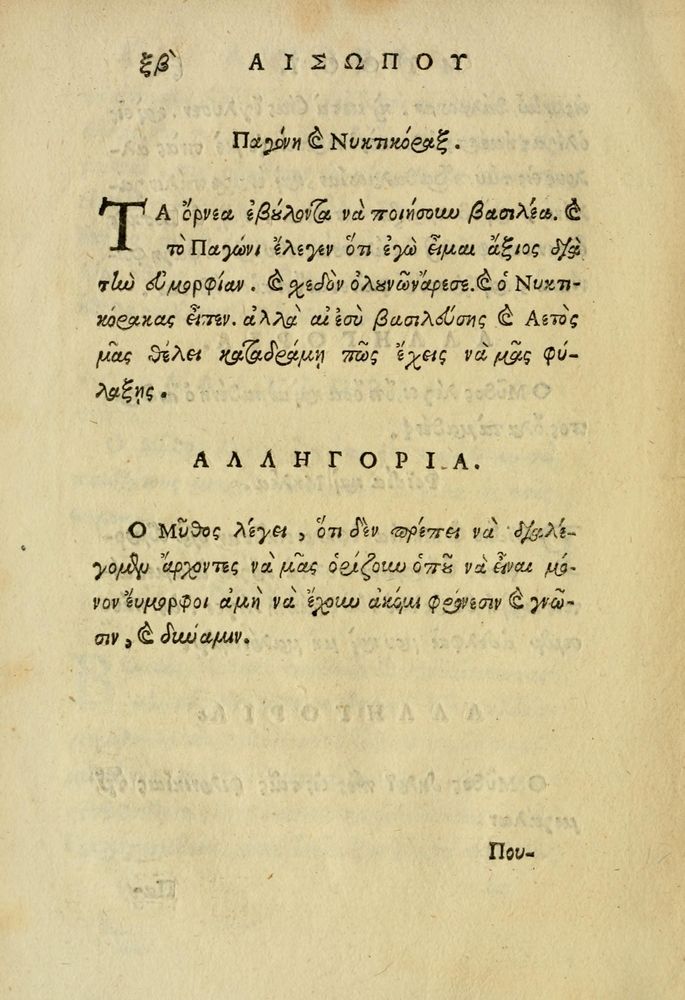 ξβ` ΑΙΣΩΠΟΥ
Παγόνη καὶ Νυκτικόραξ.
ΤΑ ὄρνεα ἐβούλονται νὰ ποιήσουν βασιλέα. καὶ
τὸ Παγώνι ἔλεγεν ὅτι ἐγὼ εἶμαι ἄξιος διὰ
τὴν εὐμορφίαν. καὶ σχεδὸν ὁλουνῶν ἄρεσε. καὶ ὁ Νυκτι-
κόρακας εἶπεν. ἀλλὰ αἰ ἐσὺ βασιλεύσῃς καὶ Αετὸς
μᾶς θέλει καταδράμῃ πῶς ἔχεις νὰ μᾶς φύ-
λαξῃς.
ΑΛΛΗΓΟΡΙΑ.
Ο Μῦθος λέγει, ὅτι δὲν πρέπει νὰ διαλέ-
γομεν ἄρχοντες νὰ μᾶς ὁρίζουν ὁποῦ νὰ εἶναι μό-
νον ἔυμορφοι ἀμὴ νὰ ἔχουν ἀκόμι φρόνεσιν καὶ γνῶ-
σιν, καὶ δύναμιν.
Που-